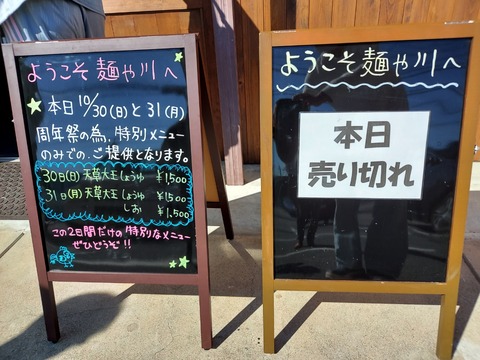 ようこそ麺や川へ
本日10/30(日)と31(月)
周年祭の為、特別メニュー
のみでの、ご提供となります。
30日(日)天草大王しょうゆ ¥1,500
31日(月)天草大王しょうゆ ¥1,500
しお ¥1,500
この2日間だけの特別なメニュー
ぜひどうぞ!!
ようこそ麺や川へ
本日
売り切れ